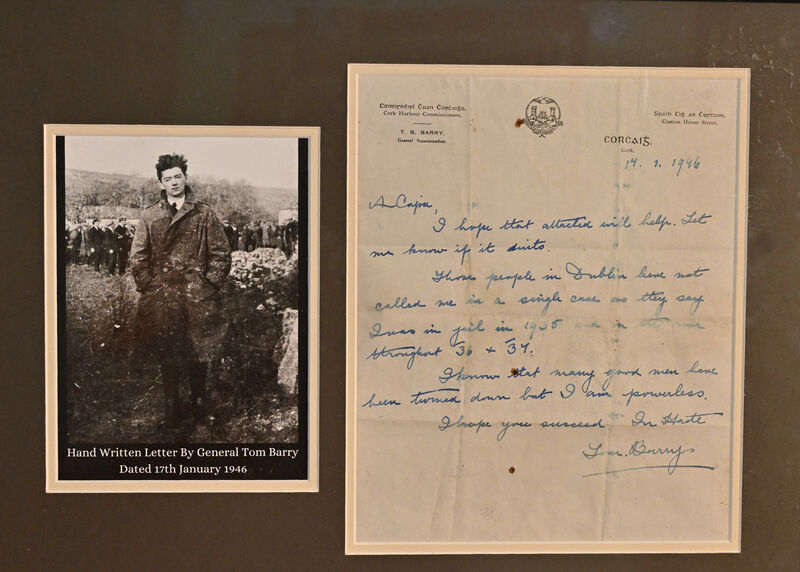 Hand Written Letter By General Tom Barry
Dated 17th January 1946
Cork Harbour Commissioners.
T. B. BARRY,
General Superintendent.
CORCAIġ,
Cork.
Custom House Street.
17. 1. 1946
A Cara,
I hope that attached will help. Let
me know if it suits.
Those people in Dublin have not
called me in a single case as they say
I was in jail in 1935 and in the
throughout '36 + '37.
I know that many good men have
been turned down but I am powerless.
I hope you succeed In Haste
Tom Barry